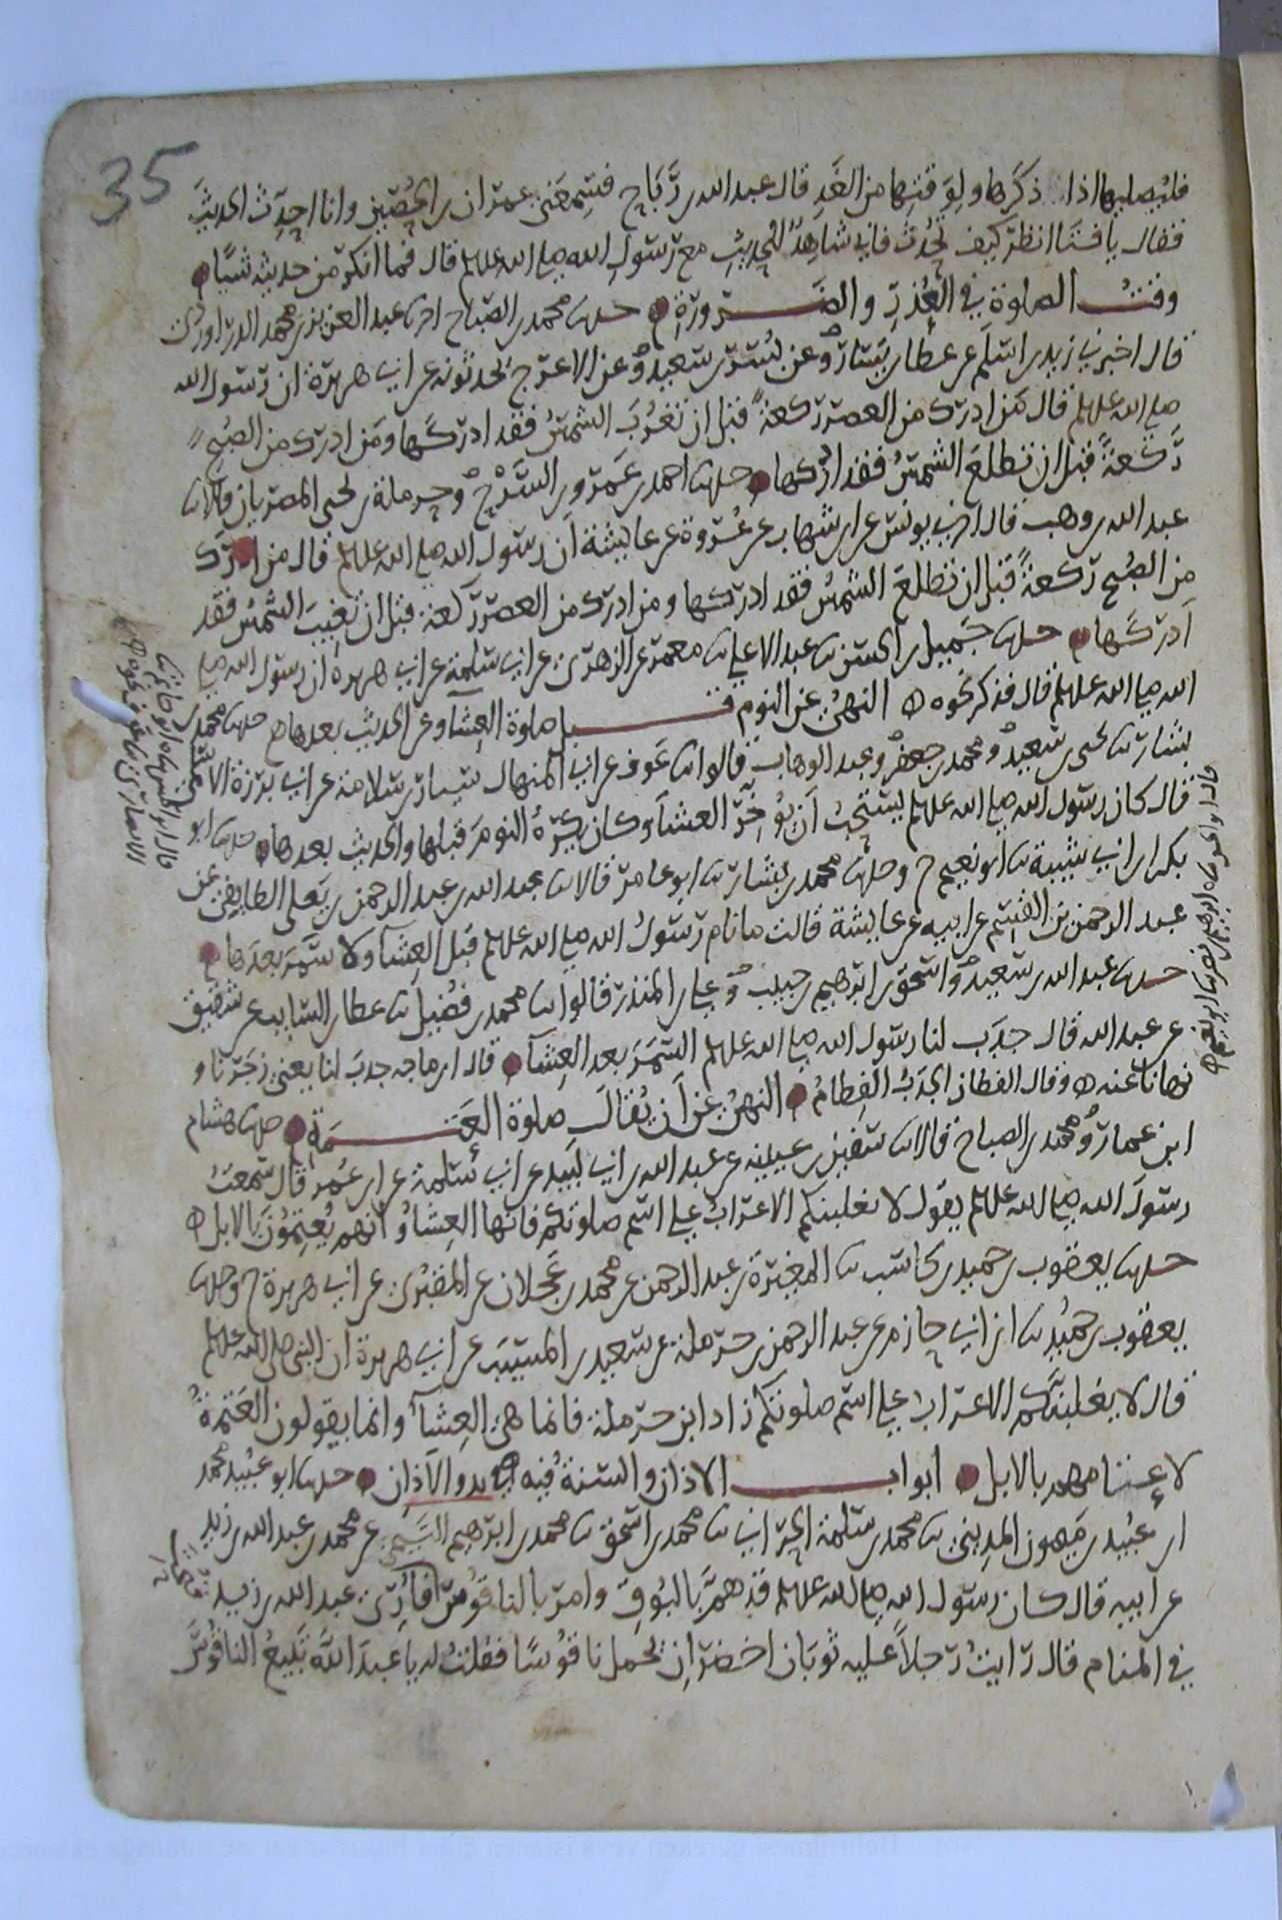 35
فليصليها اذا ذكرها ولوقتها من الغد قال عبد الله بن رباح فسمعني عمران بن الحصين وانا احدث الحديث
فقال يا فتى انظر كيف تحدث فاني شاهد للحديث مع رسول الله صلى الله عليه وسلم قال فما انكر من حديثه شيا
وقت الصلوة في العذر والضرورة حدثنا محمد بن الصباح اخبرنا عبد العزيز بن محمد الدراوردي
قال اخبرني زيد بن اسلم عن عطا بن يسار وعن بسر بن سعيد وعن الاعرج يحدثونه عن ابي هريرة ان رسول الله
صلى الله عليه وسلم قال من ادرك من العصر ركعة قبل ان تغرب الشمس فقد ادركها ومن ادرك من الصبح
ركعة قبل ان تطلع الشمس فقد ادركها حدثنا احمد بن عمرو بن السرح وحرملة بن يحيى المصريان قالا ثنا
عبد الله بن وهب قال اخبرني يونس عن ابن شهاب عن عروة عن عايشة ان رسول الله صلى الله عليه وسلم قال من ادرك
من الصبح ركعة قبل ان تطلع الشمس فقد ادركها ومن ادرك من العصر ركعة قبل ان تغيب الشمس فقد
ادركها حدثنا جميل بن الحسن ثنا عبد الاعلى ثنا معمر عن الزهري عن ابي سلمة عن ابي هريرة ان رسول الله صلى
الله صلى الله عليه وسلم قال فذكر نحوه النهي عن النوم قبل صلوة العشا وعن الحديث بعدها حدثنا محمد بن
بشار ثنا يحيى بن سعيد ومحمد بن جعفر وعبد الوهاب قالوا ثنا عوف عن ابي المنهال سيار بن سلامة عن ابي برزة الاسلمي
قال كان رسول الله صلى الله عليه وسلم يستحب ان يوخر العشا وكان يكره النوم قبلها والحديث بعدها حدثنا ابو
بكر بن ابي شيبة ثنا ابو نعيم ح وحدثنا محمد بن بشار ثنا ابو عامر قالا ثنا عبد الله بن عبد الرحمن بن يعلى الطايفي عن
عبد الرحمن بن القسم عن ابيه عن عايشة قالت ما نام رسول الله صلى الله عليه وسلم قبل العشا ولا سمر بعدها
حدثنا عبد الله بن سعيد واسحق بن ابرهيم بن حبيب وعلي بن المنذر قالوا ثنا محمد بن فضيل ثنا عطا بن السايب عن شقيق
عن عبد الله قال جدب لنا رسول الله صلى الله عليه وسلم السمر بعد العشا قال ابن ماجه جدب لنا يعني زجرنا و
نهانا عنه وقال القطان الجدب الفطام النهي عن ان يقال صلوة العتمة حدثنا هشام
ابن عمار ومحمد بن الصباح قالا ثنا سفين بن عيينة عن عبد الله بن ابي لبيد عن ابي سلمة عن ابن عمر قال سمعت
رسول الله صلى الله عليه وسلم يقول لا تغلبنكم الاعراب على اسم صلوتكم فانها العشا وانهم يعتمون بالابل
حدثنا يعقوب بن حميد بن كاسب ثنا المغيرة بن عبد الرحمن عن محمد بن عجلان عن المقبري عن ابي هريرة ح وحدثنا
يعقوب بن حميد ثنا ابن ابي حازم عن عبد الرحمن بن حرملة عن سعيد بن المسيب عن ابي هريرة ان النبي صلى الله عليه وسلم
قال لا يغلبنكم الاعراب على اسم صلوتكم زاد ابن حرملة فانما هي العشا وانما يقولون العتمة
لاعتامهم بالابل ابواب الاذان والسنة فيه بدو الاذان حدثنا ابو عبيد محمد
ابن عبيد بن ميمون المديني ثنا محمد بن سلمة الحراني ثنا محمد بن اسحق ثنا محمد بن ابرهيم التيمي عن محمد بن عبد الله بن زيد
عن ابيه قال كان رسول الله صلى الله عليه وسلم قد هم بالبوق وامر بالناقوس فاري عبد الله بن زيد
في المنام قال رايت رجلا عليه ثوبان اخضران يحمل ناقوسا فقلت له يا عبد الله تبيع الناقوس